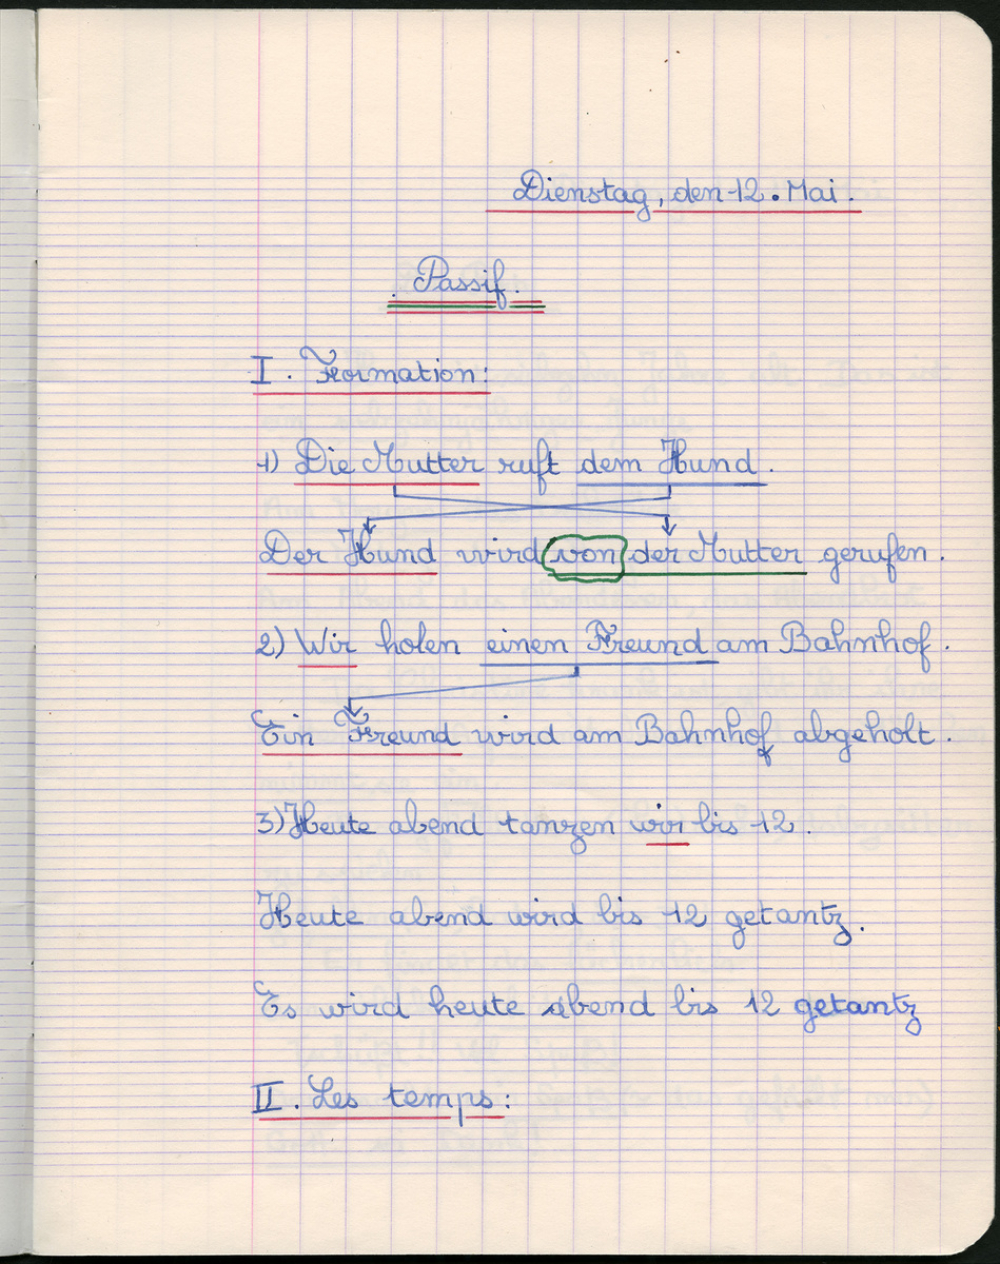 Dienstag, den 12. Mai.
Passif.
I. Formation:
1) Die Mutter ruft dem Hund.
Der Hund wird von der Mutter gerufen.
2) Wir holen einen Freund am Bahnhof.
Ein Freund wird am Bahnhof abgeholt.
3) Heute abend tanzen wir bis 12.
Heute abend wird bis 12 getantz.
Es wird heute abend bis 12 getantz
II. Les temps: